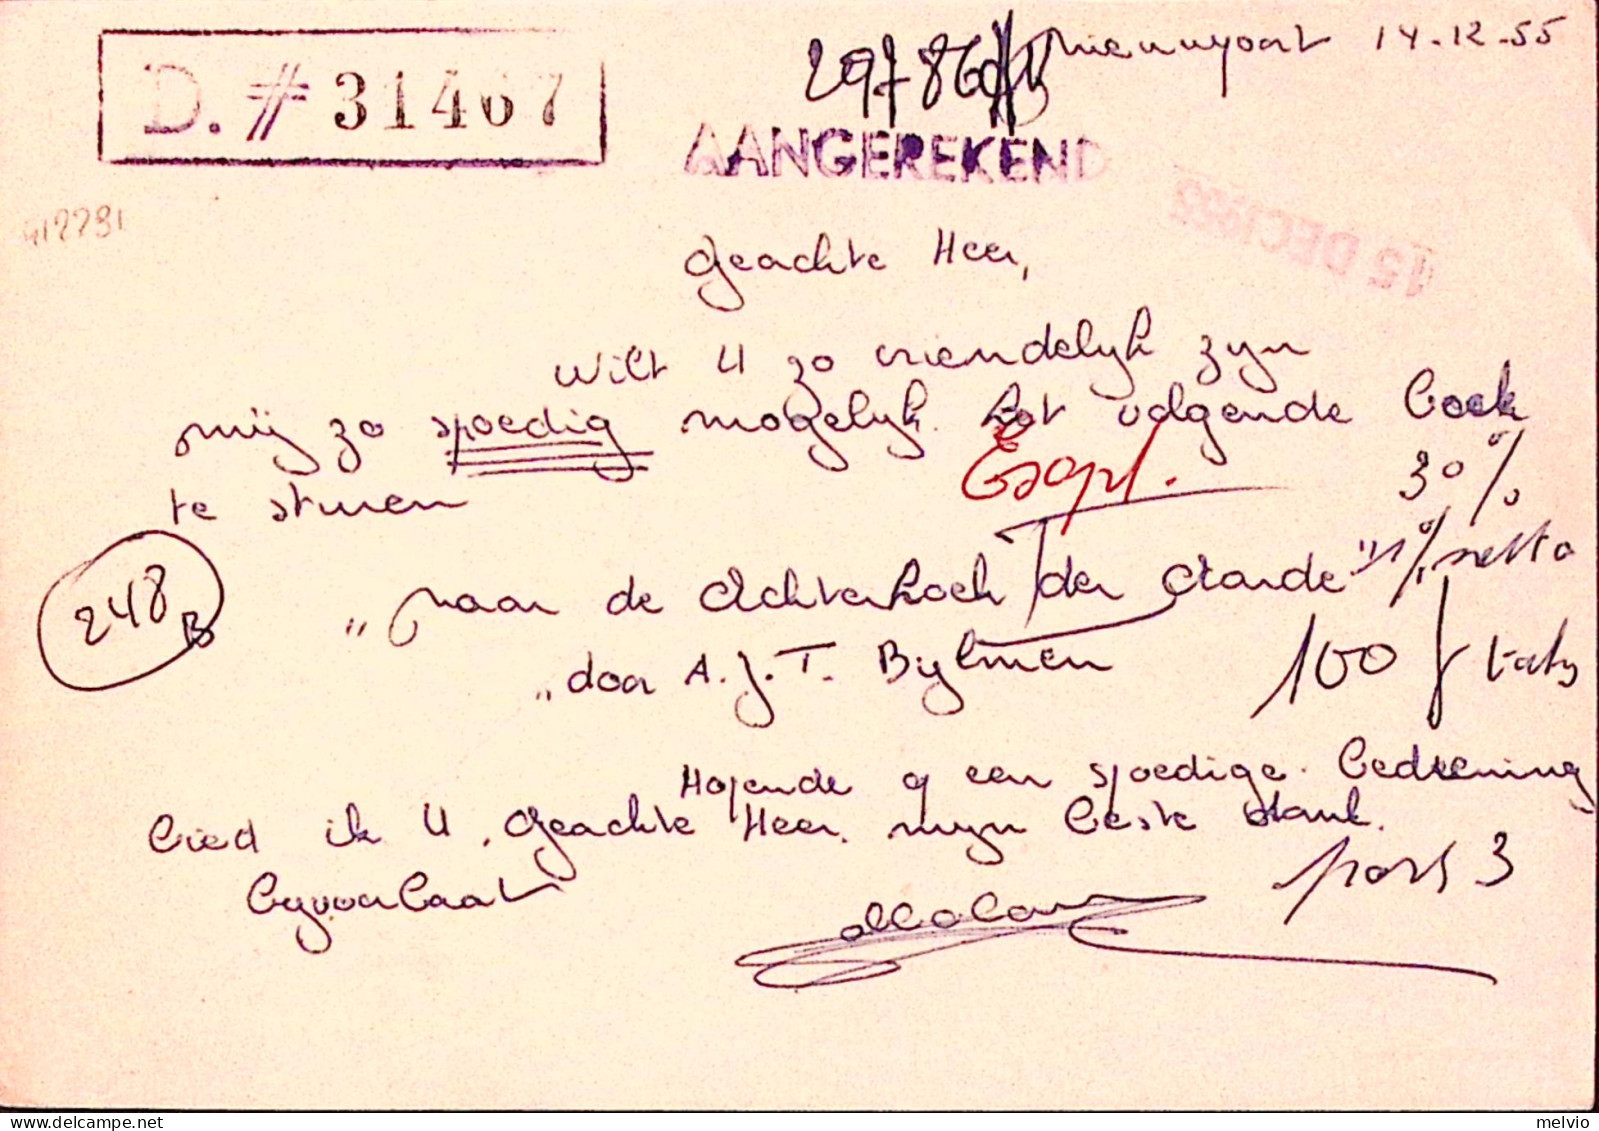 D. # 31467
29786
Nieuwpoort 14.12.55
AANGEREKEND
15 DEC 1955
412291
Geachte Heer,
Wilt U zo vriendelijk zijn
mij zo spoedig mogelijk het volgende boek
te sturen
30%
248 B
"naar de Achterhoek der Aarde" netto
"door A.J.T. Bylmen
100 f
Hopende op een spoedige bediening
bied ik U, Geachte Heer, mijn beste dank.
bijvoorbaat
port 3